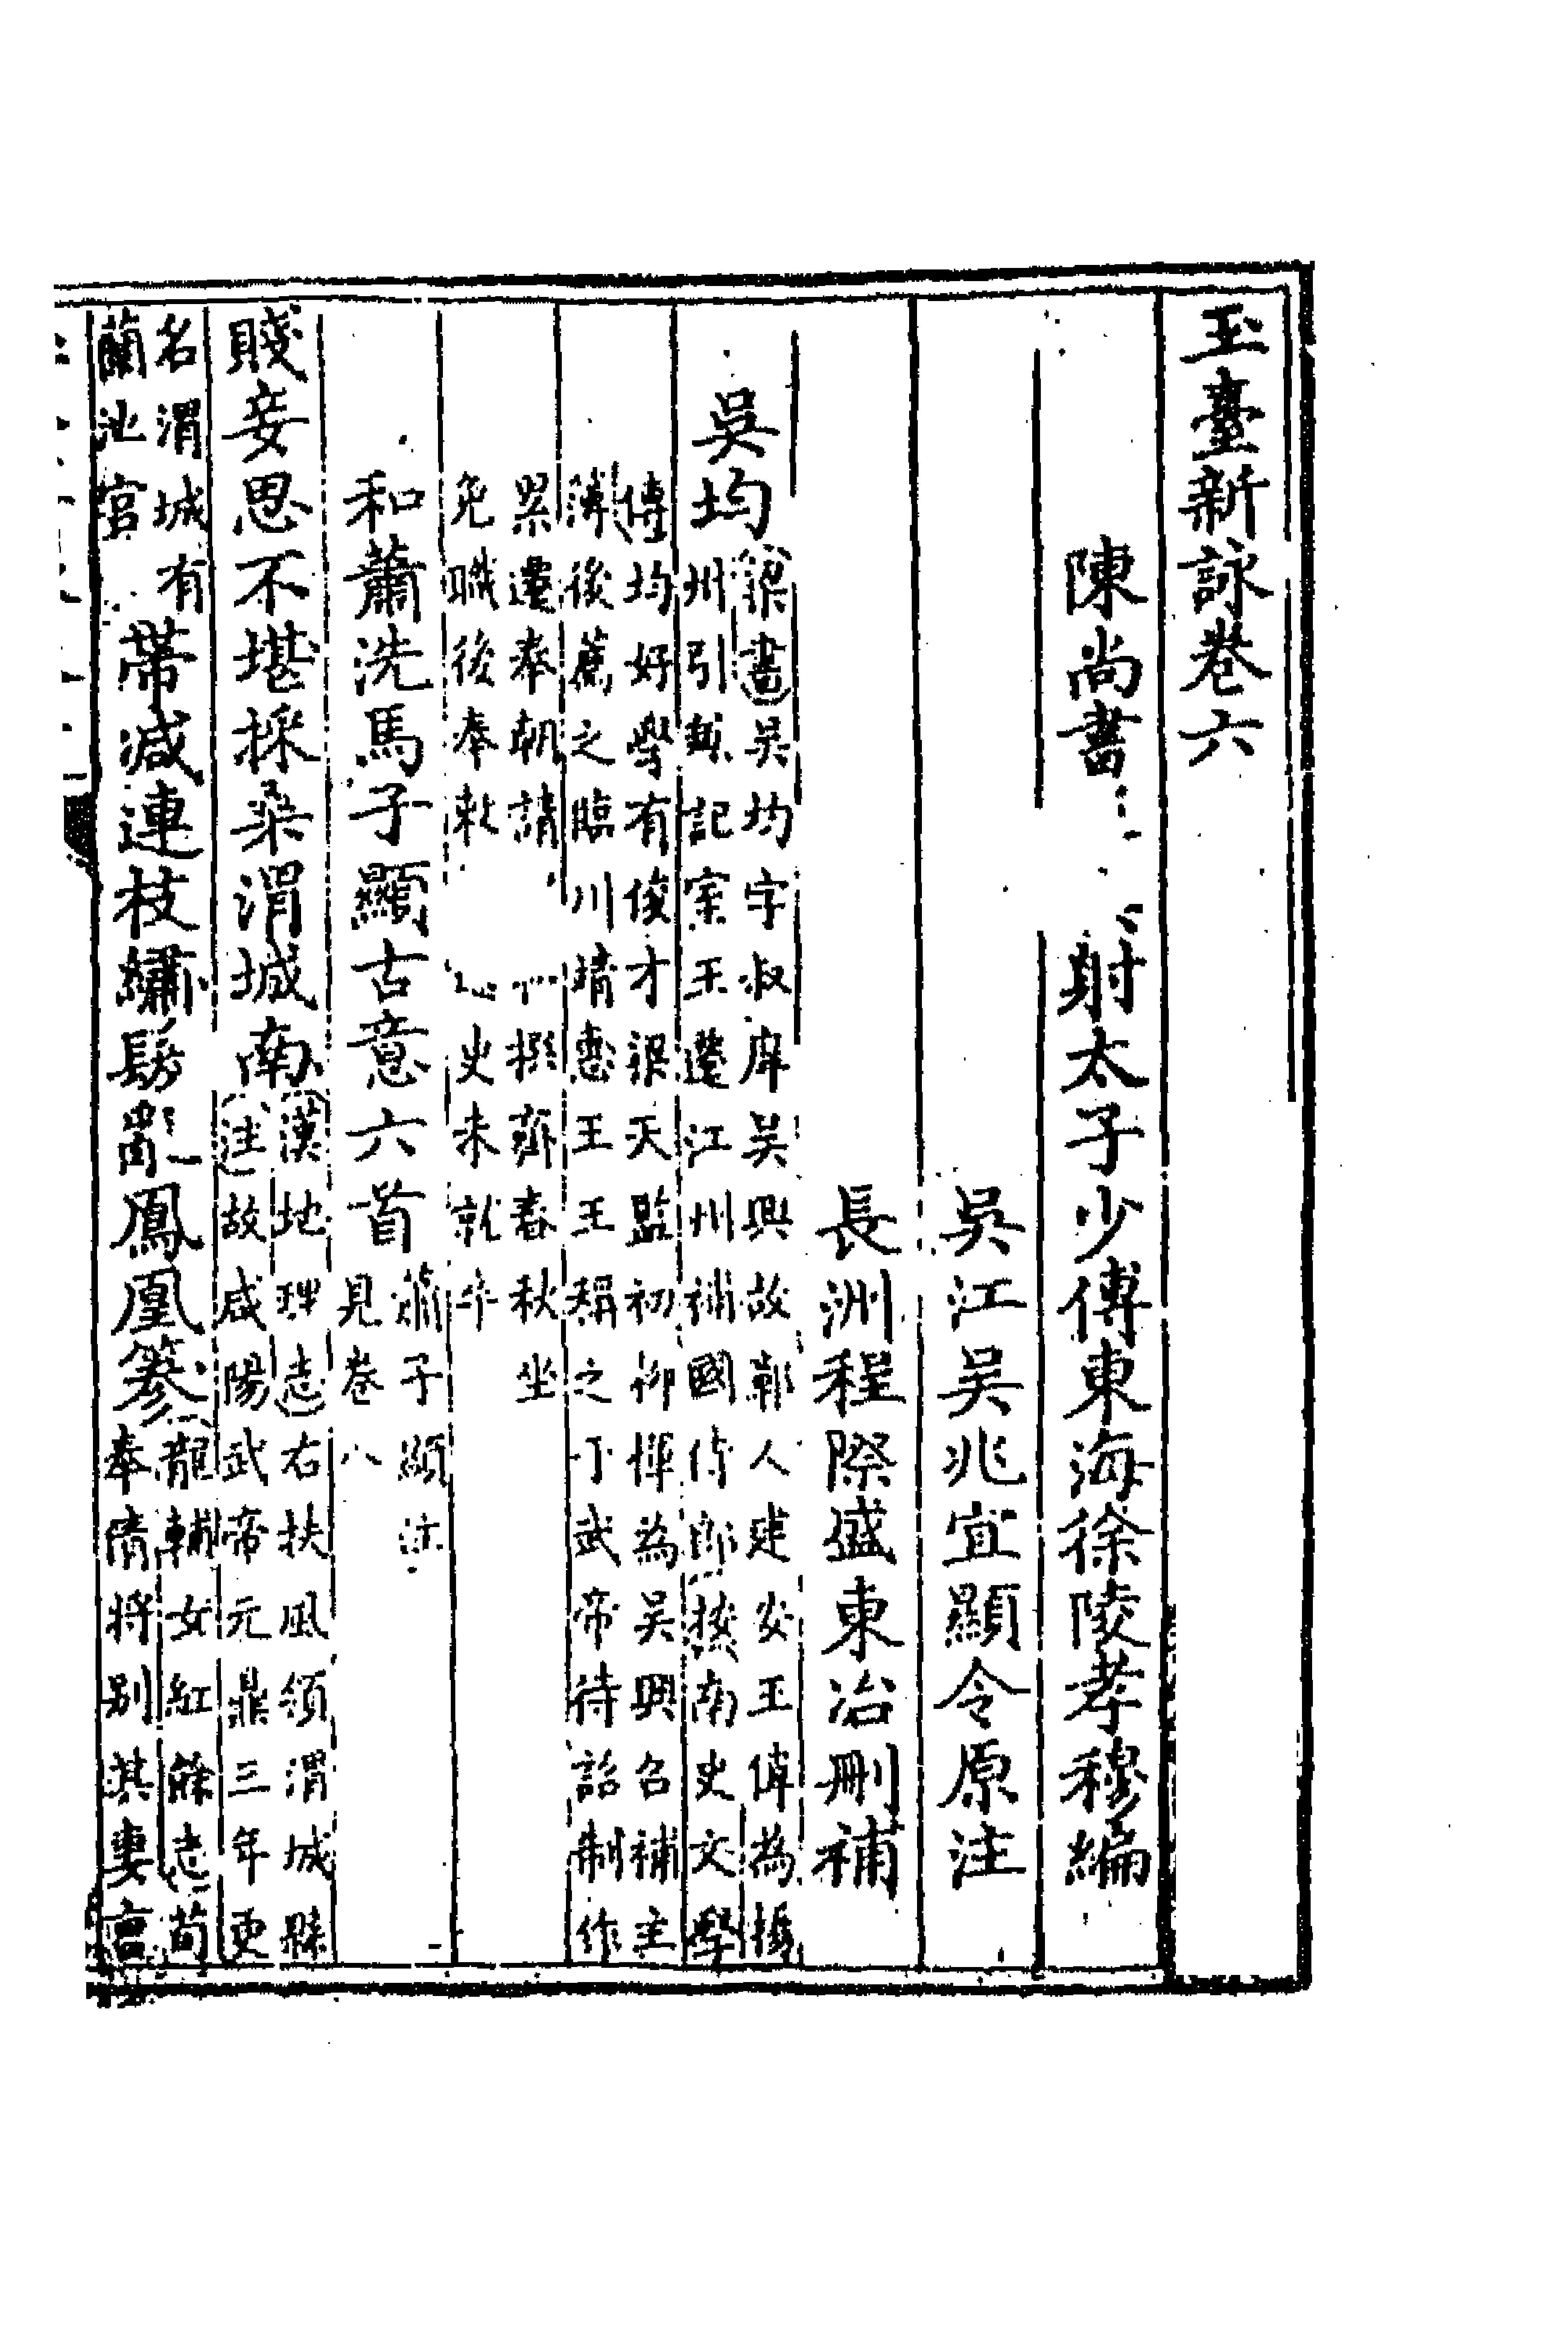 玉臺新詠卷六
陳尚書 射太子少傅東海徐陵孝穆編
吳江吴兆宜顯令原注
長洲程際盛東冶刪補
吳均
梁書吴均字叔庠吴興故鄣人建安王偉為揚
州引兼記室王遷江州補國侍郎按南史文學
傳均好學有俊才梁天監初柳惲為吴興召補主
簿後薦之臨川靖惠王王稱之于武帝待詔制作
累遷奉朝請 撰齊春秋坐
免職後奉敕 史未就卒
和蕭洗馬子顯古意六首
蕭子顯注
見卷八
賤妾思不堪採桑渭城南
漢地理志右扶風領渭城縣
注故咸陽武帝元鼎三年更
名渭城有
蘭池宮
帶減連枝繡鬢亂鳳凰簪
龍輔女紅餘志荀
奉倩將别其妻